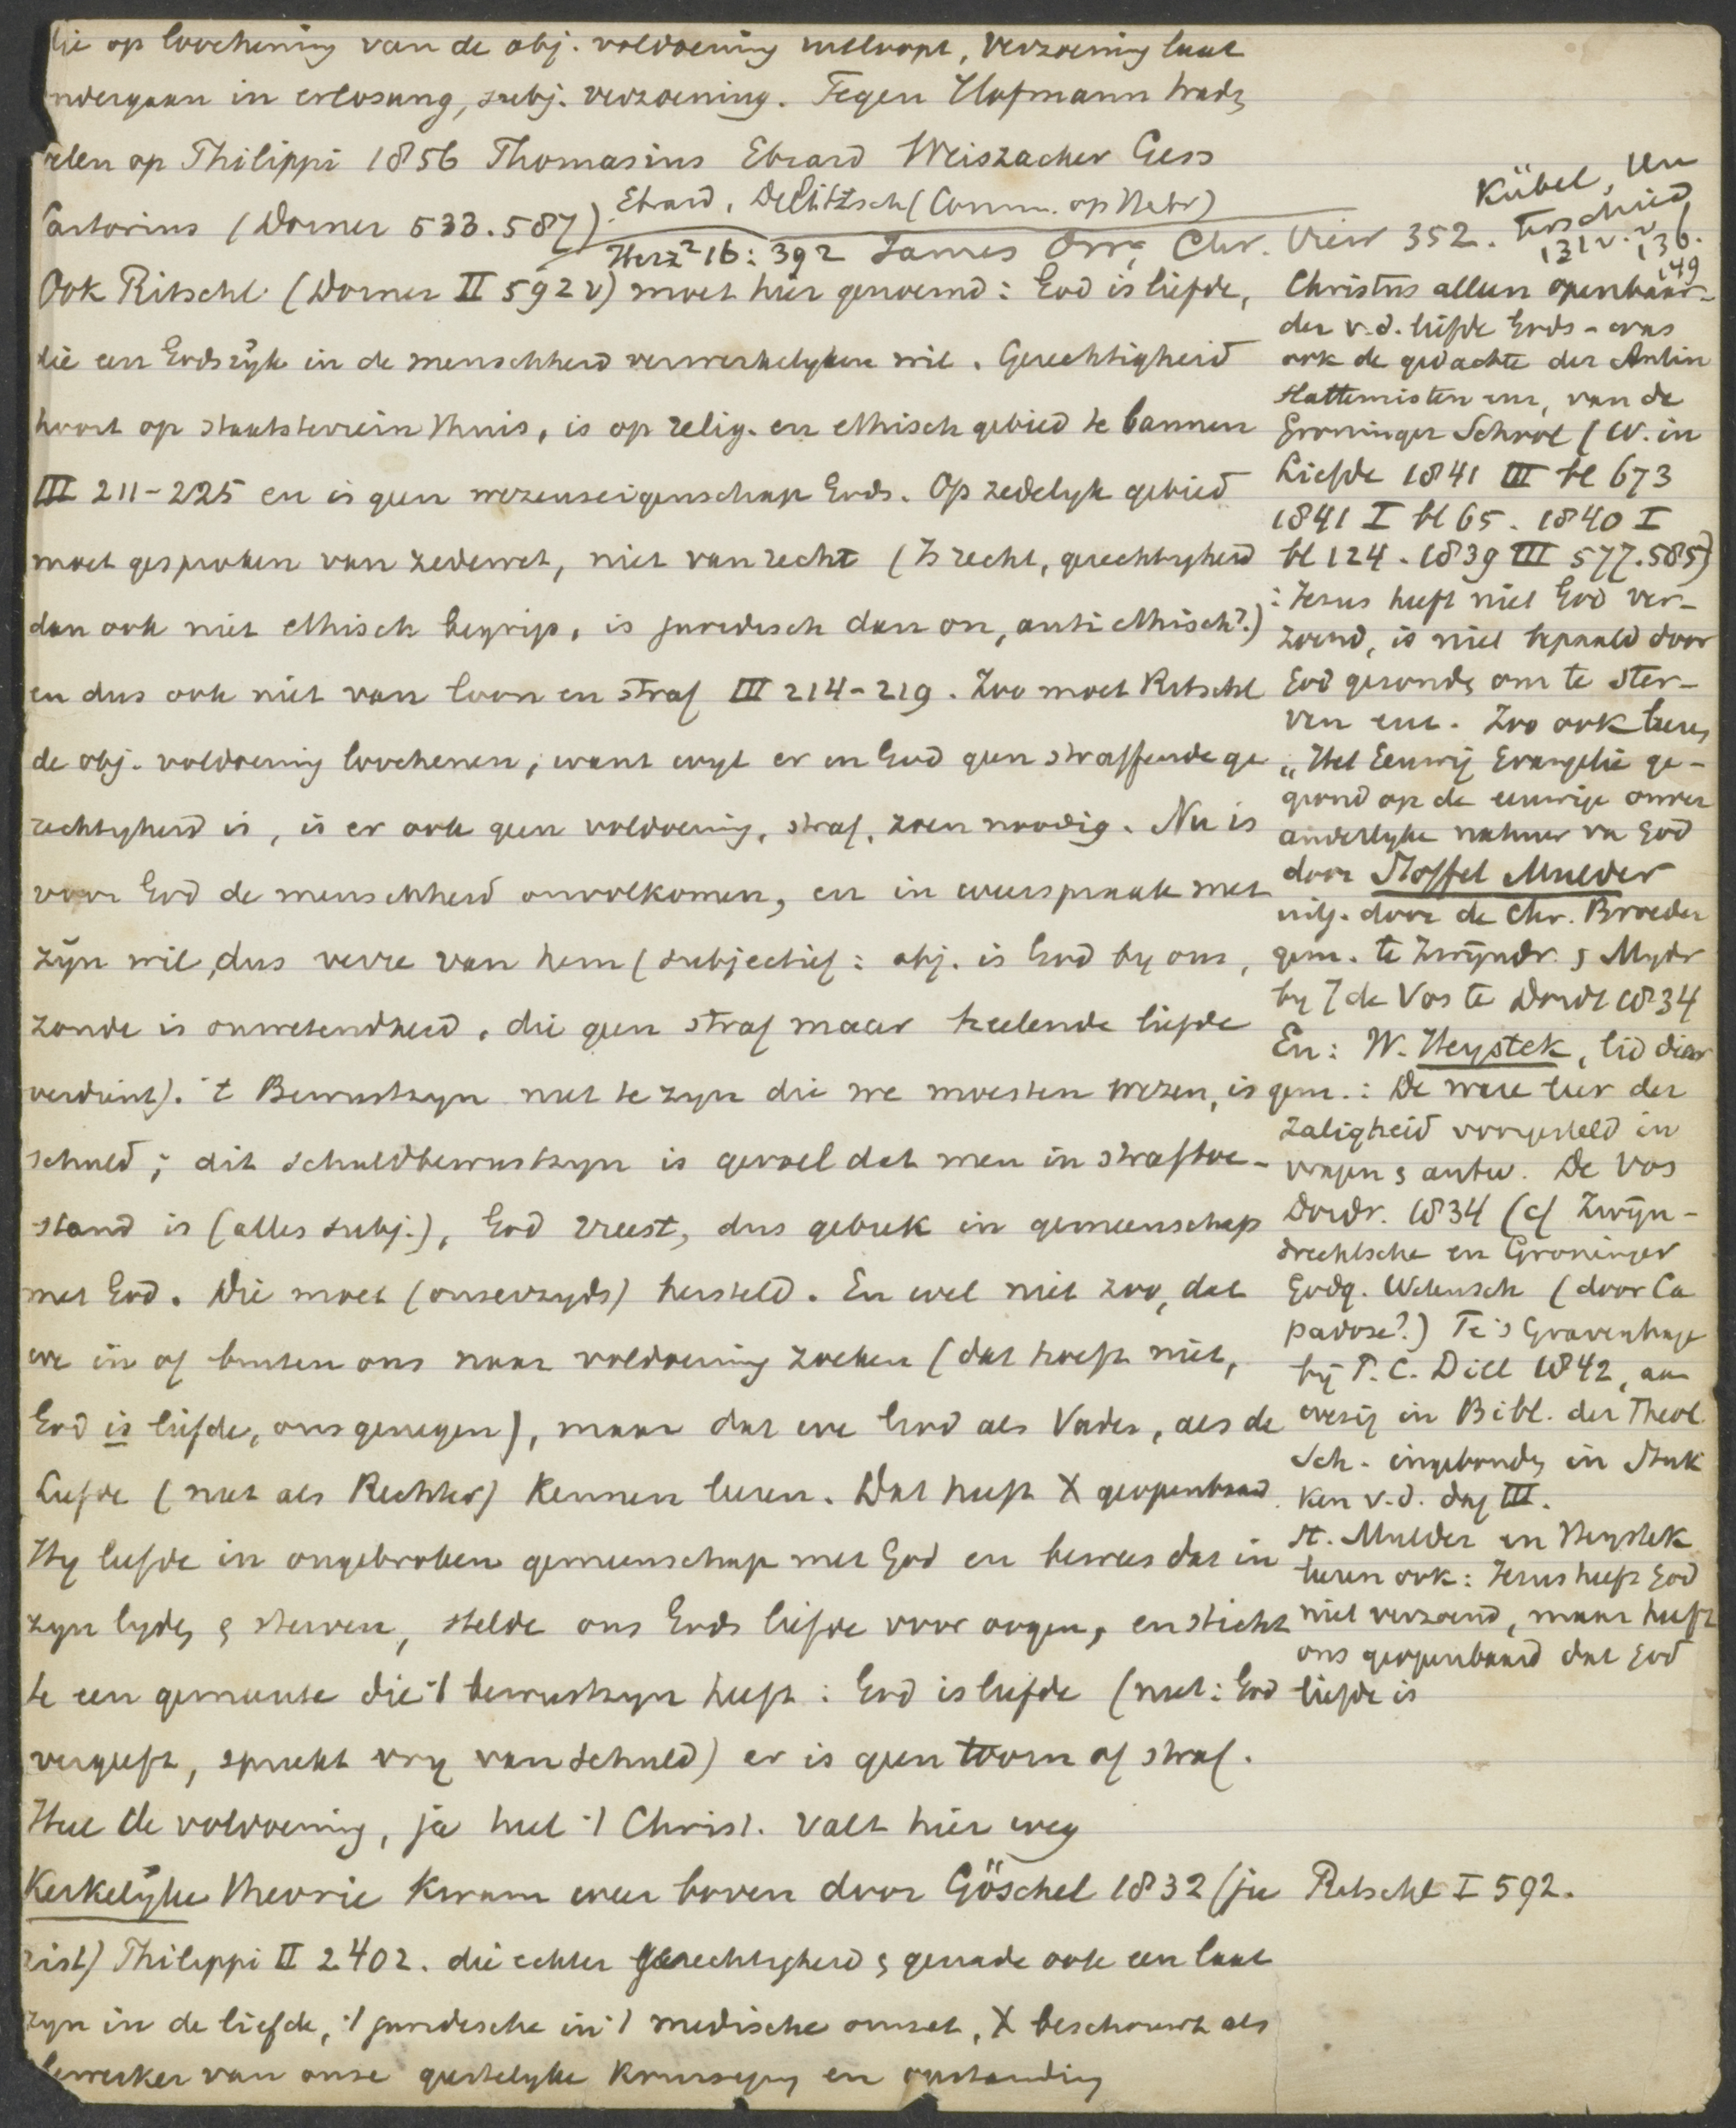 die op loochening van de obj. voldoening uitloopt, verzoening laat
ondergaan in erlösung, subj. verzoening. Tegen Hofmann trad
velen op Philippi 1856 Thomasius Ebrard Weiszacker Gess
Sartorius (Dorner 533.587). Ebrard, Delitzsch (Comm. op Hebr)
Herz² 16: 392 James Orr, Chr. View 352. Kübel, Un
terschied
131 v.v. 136.
149
Ook Ritschl (Dorner II 592 v) moet hier genoemd: God is liefde,
die een Godsrijk in de menschheid verwerkelyken wil. Gerechtigheid
hoort op staatsterrein thuis, is op relig. en ethisch gebied te bannen
III 211-225 en is geen wezenseigenschap Gods. Op zedelyk gebied
moet gesproken van zedewet, niet van recht (Is recht, gerechtigheid
dan ook niet ethisch begrip, is juridisch dan on, anti ethisch?.)
en dus ook niet van loon en straf III 214-219. Zoo moet Ritschl
de obj. voldoening loochenen, want wyl er in God geen straffende ge
rechtigheid is, is er ook geen voldoening, straf, zoen noodig. Nu is
voor God de menschheid onvolkomen, en in weerspraak met
zijn wil, dus verre van hem (subjectief: obj. is God by ons,
zonde is onwetendheid, die geen straf maar heelende liefde
verdient). 't Bewustzyn niet te zyn die we moesten wezen, is
schuld; dit schuldbewustzyn is gevoel dat men in strafftoe-
stand is (alles subj.), God vreest, dus gebrek in gemeenschap
met God. Die moet (onzerzyds) hersteld. En wel niet zoo, dat
we in of buiten ons naar voldoening zoeken (dat hoeft niet,
God is liefde, ons genegen), maar dat we God als Vader, als de
Liefde (niet als Rechter) kennen leeren. Dat heeft X geopenbaard.
Hy leefde in ongebroken gemeenschap met God en bewees dat in
zyn lyden & sterven, stelde ons Gods liefde voor oogen, en sticht
te een gemeente die 't bewustzyn heeft: God is liefde (niet: God
vergeeft, spreekt vry van schuld) er is geen toorn of straf.
Heel de voldoening, ja heel 't Christ. valt hier weg
Kerkelyke theorie kwam weer boven door Göschel 1832 (ju Ritschl I 592.
rist) Philippi II 2402. die echter gerechtigheid & genade ook een laat
zyn in de liefde, 't juridische in 't medische omzet, X beschouwt als
bewerker van onze geestelyke kruisiging en opstanding
Christus alleen openbaar-
der v.d. liefde Gods - was
ook de gedachte der Antin
Hattemisten enz, van de
Groninger School (W. in
Liefde 1841 III bl 673
1841 I bl 65. 1840 I
bl 124. 1839 III 577.585)
: Jezus heeft niet God ver-
zoend, is niet bepaald door
God gezonden om te ster-
ven enz. Zoo ook leeren
"Het Eeuwig Evangelie ge-
grond op de eeuwige onver
anderlyke natuur van God
door Stoffel Mulder
uitg. door de Chr. Broeder
gem. te Zwijndr. & Mydr
by J de Vos te Dordt 1834
En: W. Heystek, lid dier
gem.: De ware leer der
zaligheid voorgesteld in
vragen & antw. De Vos
Dordr. 1834 (cf Zwijn-
drechtsche en Groninger
Godg. Wetensch (door Ca
padose?.) Te 's Gravenhage
bij P. C. Dill 1842, aan
wezig in Bibl. der Theol.
Sch. ingebonden in Stuk
ken v.d. dag III.
St. Mulder en Heystek
leeren ook: Jezus heeft God
niet verzoend, maar heeft
ons geopenbaard dat God
liefde is